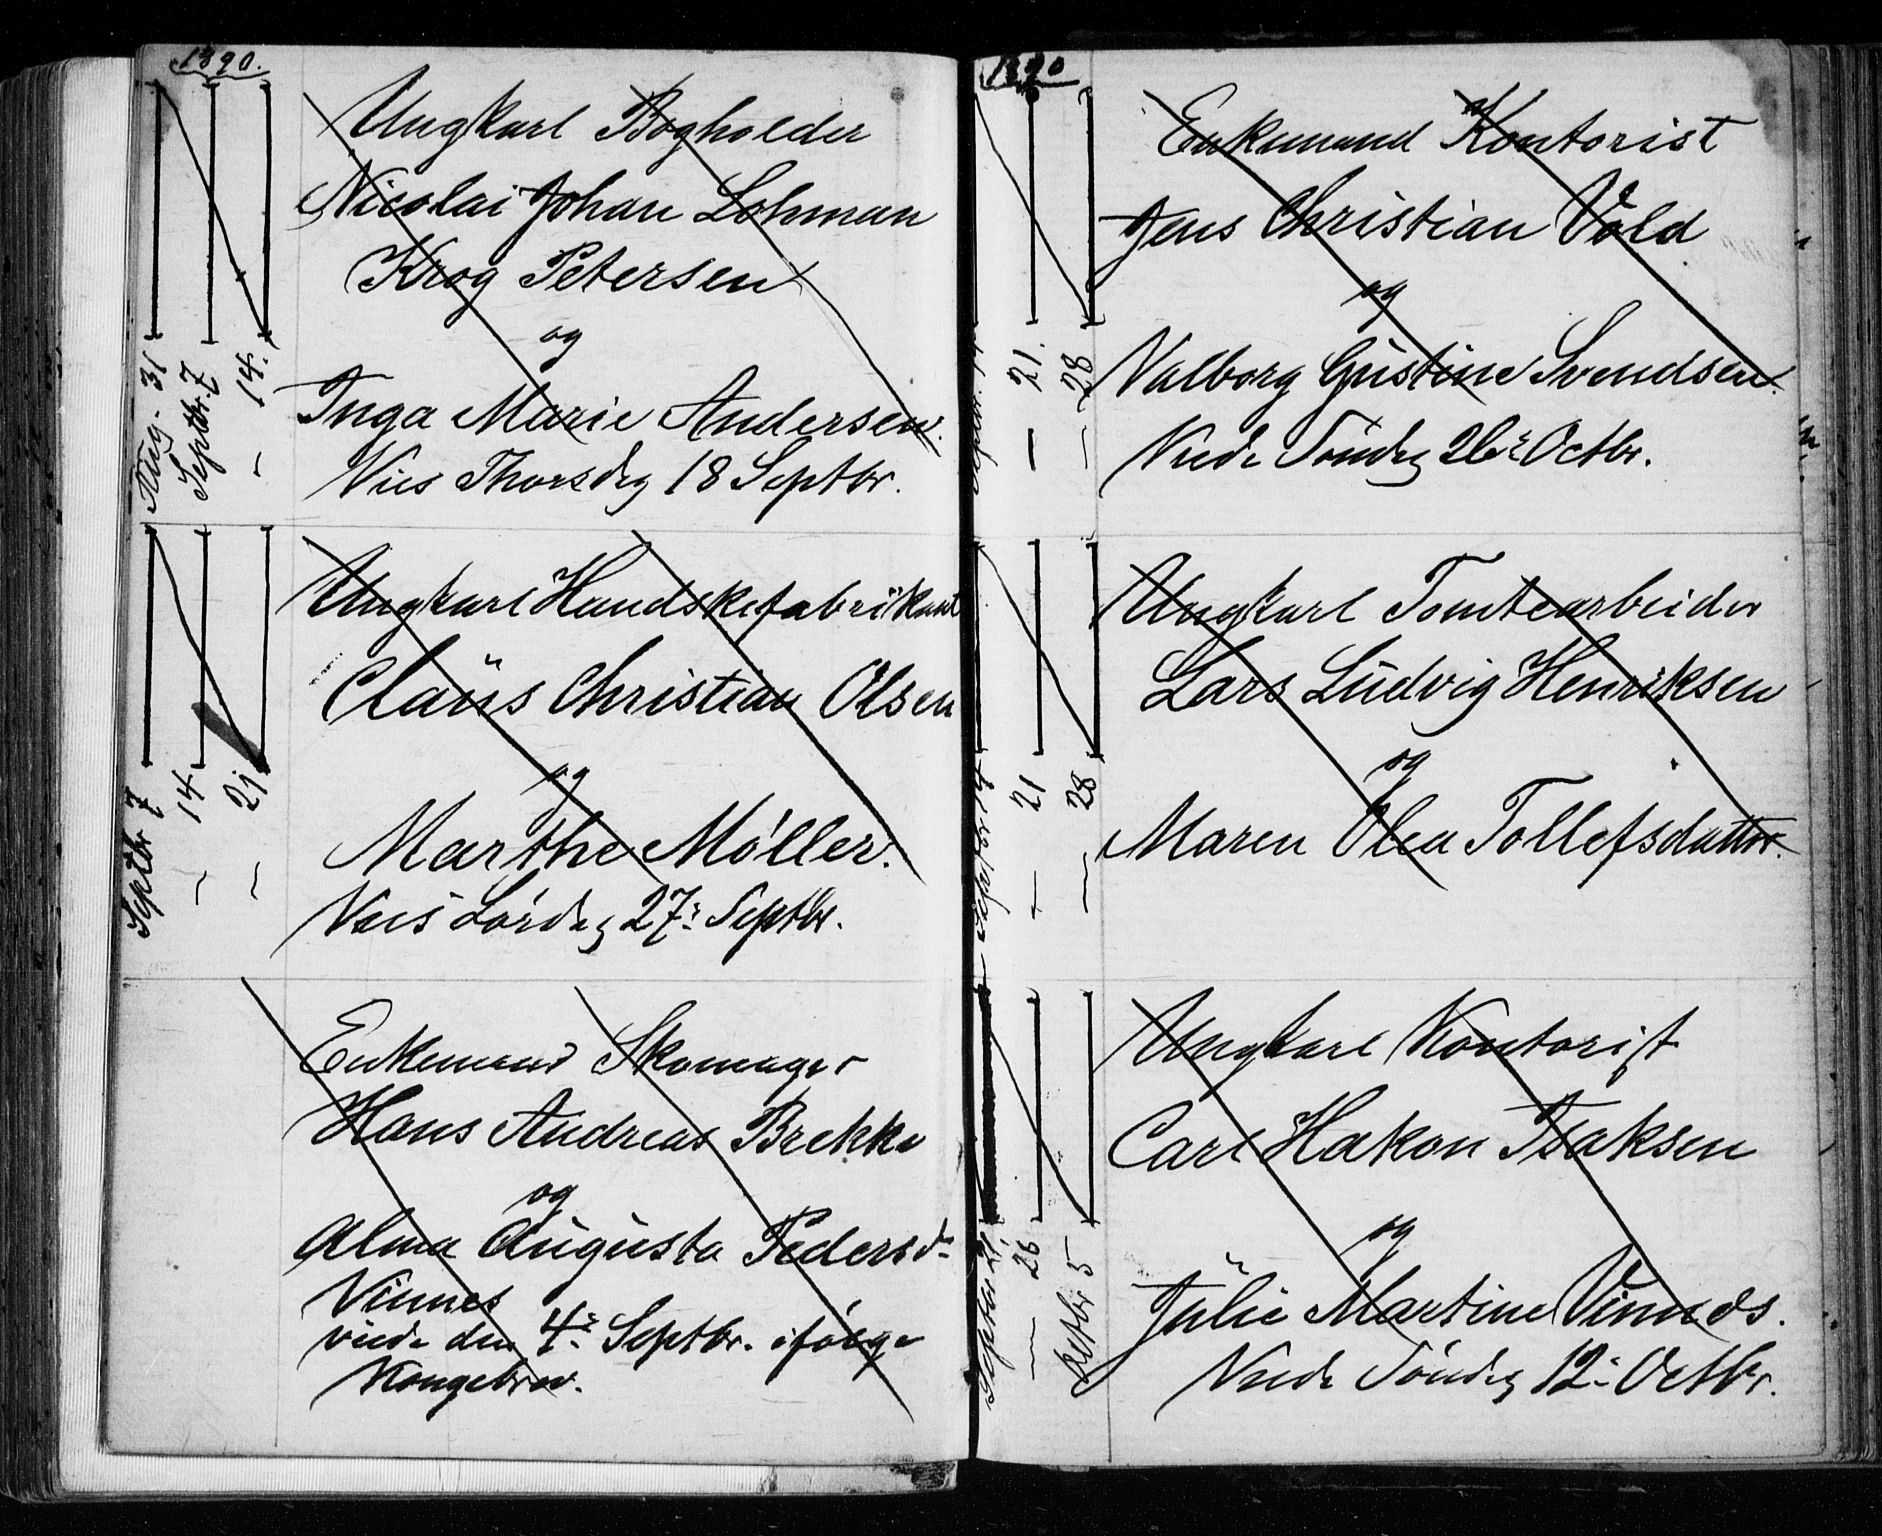 1890.
Ungkarl Bogholder
Nicolai Johan Lohman
Krog Petersen
og
Inga Marie Andersen.
Vies Thorsdg 18 Septbr.
Aug. 31
Septbr. 7
— 14.
Ungkarl Handskefabrikant
Claüs Christian Olsen
og
Marthe Møller.
Vies Lördag 27: Septbr.
Septbr 7
— 14
— 21
Enkemand Skomager
Hans Andreas Brekke
og
Alma Augusta Pedersd-
Vinnes
viede den 4: Septbr. ifølge
Kongebrev.
1890
Enkemand Kontorist
Jens Christian Vold
og
Valborg Gustine Svendsen.
Viede Søndag 26: Octbr.
Septbr. 14
— 21.
— 28
Ungkarl Tomtearbeider
Lars Ludvig Henriksen
og
Maren Olea Tollefsdatter.
Septbr 14
— 21
— 28
Ungkarl Kontorist
Carl Hakon Isaksen
og
Julie Martine Vinnes.
Viede Søndag 12: Octbr.
Septbr 21.
— 28
Octbr 5